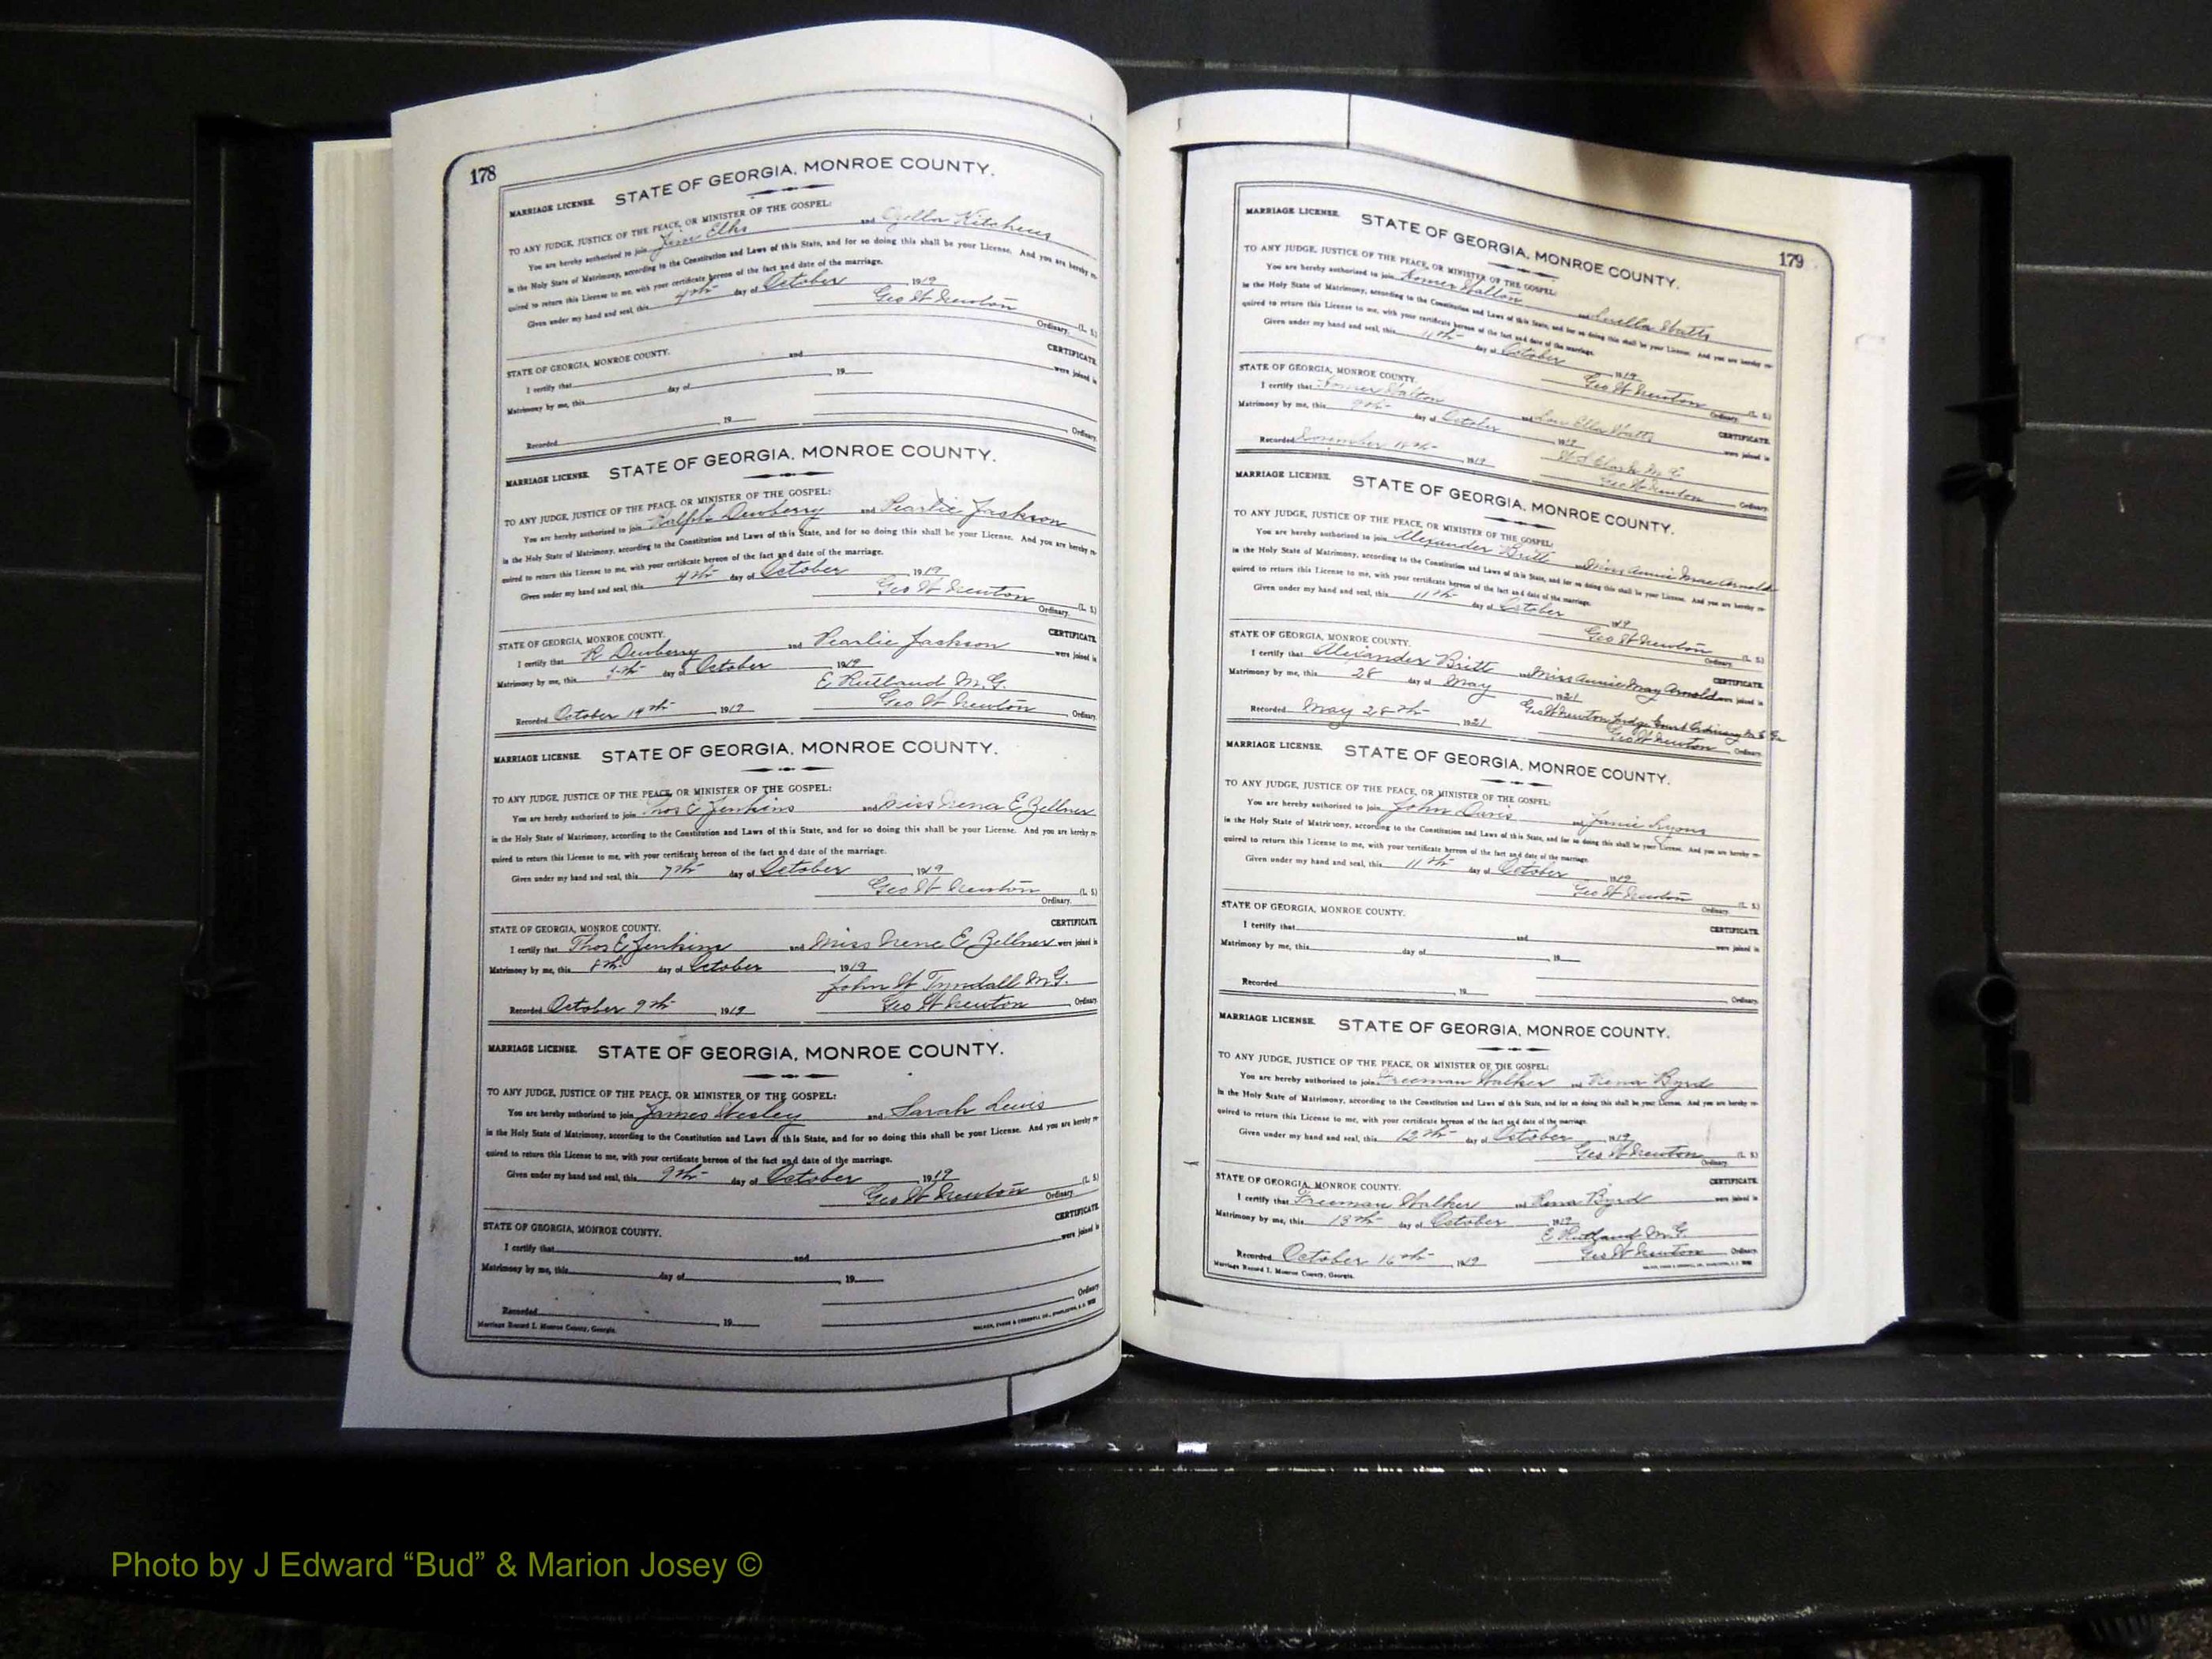 178
MARRIAGE LICENSE. STATE OF GEORGIA, MONROE COUNTY.
TO ANY JUDGE, JUSTICE OF THE PEACE, OR MINISTER OF THE GOSPEL:
You are hereby authorized to join Jim Elks and Ozella Kitchens
in the Holy State of Matrimony, according to the Constitution and Laws of this State, and for so doing this shall be your License. And you are hereby re-
quired to return this License to me, with your certificate hereon of the fact and date of the marriage.
Given under my hand and seal, this 4th day of October 1919
Geo W Newton (L. S.)
Ordinary.
STATE OF GEORGIA, MONROE COUNTY. CERTIFICATE.
I certify that and were joined in
Matrimony by me, this day of , 19
Recorded 19 Ordinary.
MARRIAGE LICENSE. STATE OF GEORGIA, MONROE COUNTY.
TO ANY JUDGE, JUSTICE OF THE PEACE, OR MINISTER OF THE GOSPEL:
You are hereby authorized to join Ralph Dewberry and Pearlie Jackson
in the Holy State of Matrimony, according to the Constitution and Laws of this State, and for so doing this shall be your License. And you are hereby re-
quired to return this License to me, with your certificate hereon of the fact and date of the marriage.
Given under my hand and seal, this 4th day of October 1919
Geo W Newton (L. S.)
Ordinary.
STATE OF GEORGIA, MONROE COUNTY. CERTIFICATE.
I certify that R Dewberry and Pearlie Jackson were joined in
Matrimony by me, this 5th day of October , 1919
E Rutland M.G.
Recorded October 14th , 1919 Geo W Newton Ordinary.
MARRIAGE LICENSE. STATE OF GEORGIA, MONROE COUNTY.
TO ANY JUDGE, JUSTICE OF THE PEACE, OR MINISTER OF THE GOSPEL:
You are hereby authorized to join Thos E Jenkins and Miss Irene E Zellner
in the Holy State of Matrimony, according to the Constitution and Laws of this State, and for so doing this shall be your License. And you are hereby re-
quired to return this License to me, with your certificate hereon of the fact and date of the marriage.
Given under my hand and seal, this 7th day of October , 1919
Geo W Newton (L. S.)
Ordinary.
STATE OF GEORGIA, MONROE COUNTY. CERTIFICATE.
I certify that Thos E Jenkins and Miss Irene E Zellner were joined in
Matrimony by me, this 8th day of October , 1919
John W Tyndall M.G.
Recorded October 9th , 1919 Geo W Newton , Ordinary.
MARRIAGE LICENSE. STATE OF GEORGIA, MONROE COUNTY.
TO ANY JUDGE, JUSTICE OF THE PEACE, OR MINISTER OF THE GOSPEL:
You are hereby authorized to join James Wesley and Sarah Lewis
in the Holy State of Matrimony, according to the Constitution and Laws of this State, and for so doing this shall be your License. And you are hereby re-
quired to return this License to me, with your certificate hereon of the fact and date of the marriage.
Given under my hand and seal, this 9th day of October , 1919
Geo W Newton (L. S.)
Ordinary.
STATE OF GEORGIA, MONROE COUNTY. CERTIFICATE.
I certify that and were joined in
Matrimony by me, this day of , 19
Recorded , 19 Ordinary.
Marriage Record I, Monroe County, Georgia.
179
MARRIAGE LICENSE. STATE OF GEORGIA, MONROE COUNTY.
TO ANY JUDGE, JUSTICE OF THE PEACE, OR MINISTER OF THE GOSPEL:
You are hereby authorized to join Homer Walton and Luella Watts
in the Holy State of Matrimony, according to the Constitution and Laws of this State, and for so doing this shall be your License. And you are hereby re-
quired to return this License to me, with your certificate hereon of the fact and date of the marriage.
Given under my hand and seal, this 11th day of October 1919
Geo W Newton (L. S.)
Ordinary.
STATE OF GEORGIA, MONROE COUNTY. CERTIFICATE.
I certify that Homer Walton and Lou Ella Watts were joined in
Matrimony by me, this 9th day of October 1919
W S Clark M.G.
Recorded November 18th 1919 Geo W Newton Ordinary.
MARRIAGE LICENSE. STATE OF GEORGIA, MONROE COUNTY.
TO ANY JUDGE, JUSTICE OF THE PEACE, OR MINISTER OF THE GOSPEL:
You are hereby authorized to join Alexander Britt and Miss Annie Mae Arnold
in the Holy State of Matrimony, according to the Constitution and Laws of this State, and for so doing this shall be your License. And you are hereby re-
quired to return this License to me, with your certificate hereon of the fact and date of the marriage.
Given under my hand and seal, this 11th day of October 1919
Geo W Newton (L. S.)
Ordinary.
STATE OF GEORGIA, MONROE COUNTY. CERTIFICATE.
I certify that Alexander Britt and Miss Annie May Arnold were joined in
Matrimony by me, this 28 day of May 1921
Geo W Newton Judge Court Ordinary M. C. Ga
Recorded May 28th , 1921 Geo W Newton Ordinary.
MARRIAGE LICENSE. STATE OF GEORGIA, MONROE COUNTY.
TO ANY JUDGE, JUSTICE OF THE PEACE, OR MINISTER OF THE GOSPEL:
You are hereby authorized to join John Davis and Janie Lyons
in the Holy State of Matrimony, according to the Constitution and Laws of this State, and for so doing this shall be your License. And you are hereby re-
quired to return this License to me, with your certificate hereon of the fact and date of the marriage.
Given under my hand and seal, this 11th day of October 1919
Geo W Newton (L. S.)
Ordinary.
STATE OF GEORGIA, MONROE COUNTY. CERTIFICATE.
I certify that and were joined in
Matrimony by me, this day of , 19
Recorded 19 Ordinary.
MARRIAGE LICENSE. STATE OF GEORGIA, MONROE COUNTY.
TO ANY JUDGE, JUSTICE OF THE PEACE, OR MINISTER OF THE GOSPEL:
You are hereby authorized to join Freeman Walker and Rena Byrde
in the Holy State of Matrimony, according to the Constitution and Laws of this State, and for so doing this shall be your License. And you are hereby re-
quired to return this License to me, with your certificate hereon of the fact and date of the marriage.
Given under my hand and seal, this 12th day of October , 1919
Geo W Newton (L. S.)
Ordinary.
STATE OF GEORGIA, MONROE COUNTY. CERTIFICATE.
I certify that Freeman Walker and Rena Byrde were joined in
Matrimony by me, this 13th day of October 1919
E Rutland M.G.
Recorded October 16th , 1919 Geo W Newton Ordinary.
Marriage Record I, Monroe County, Georgia.
Photo by J Edward “Bud” & Marion Josey ©